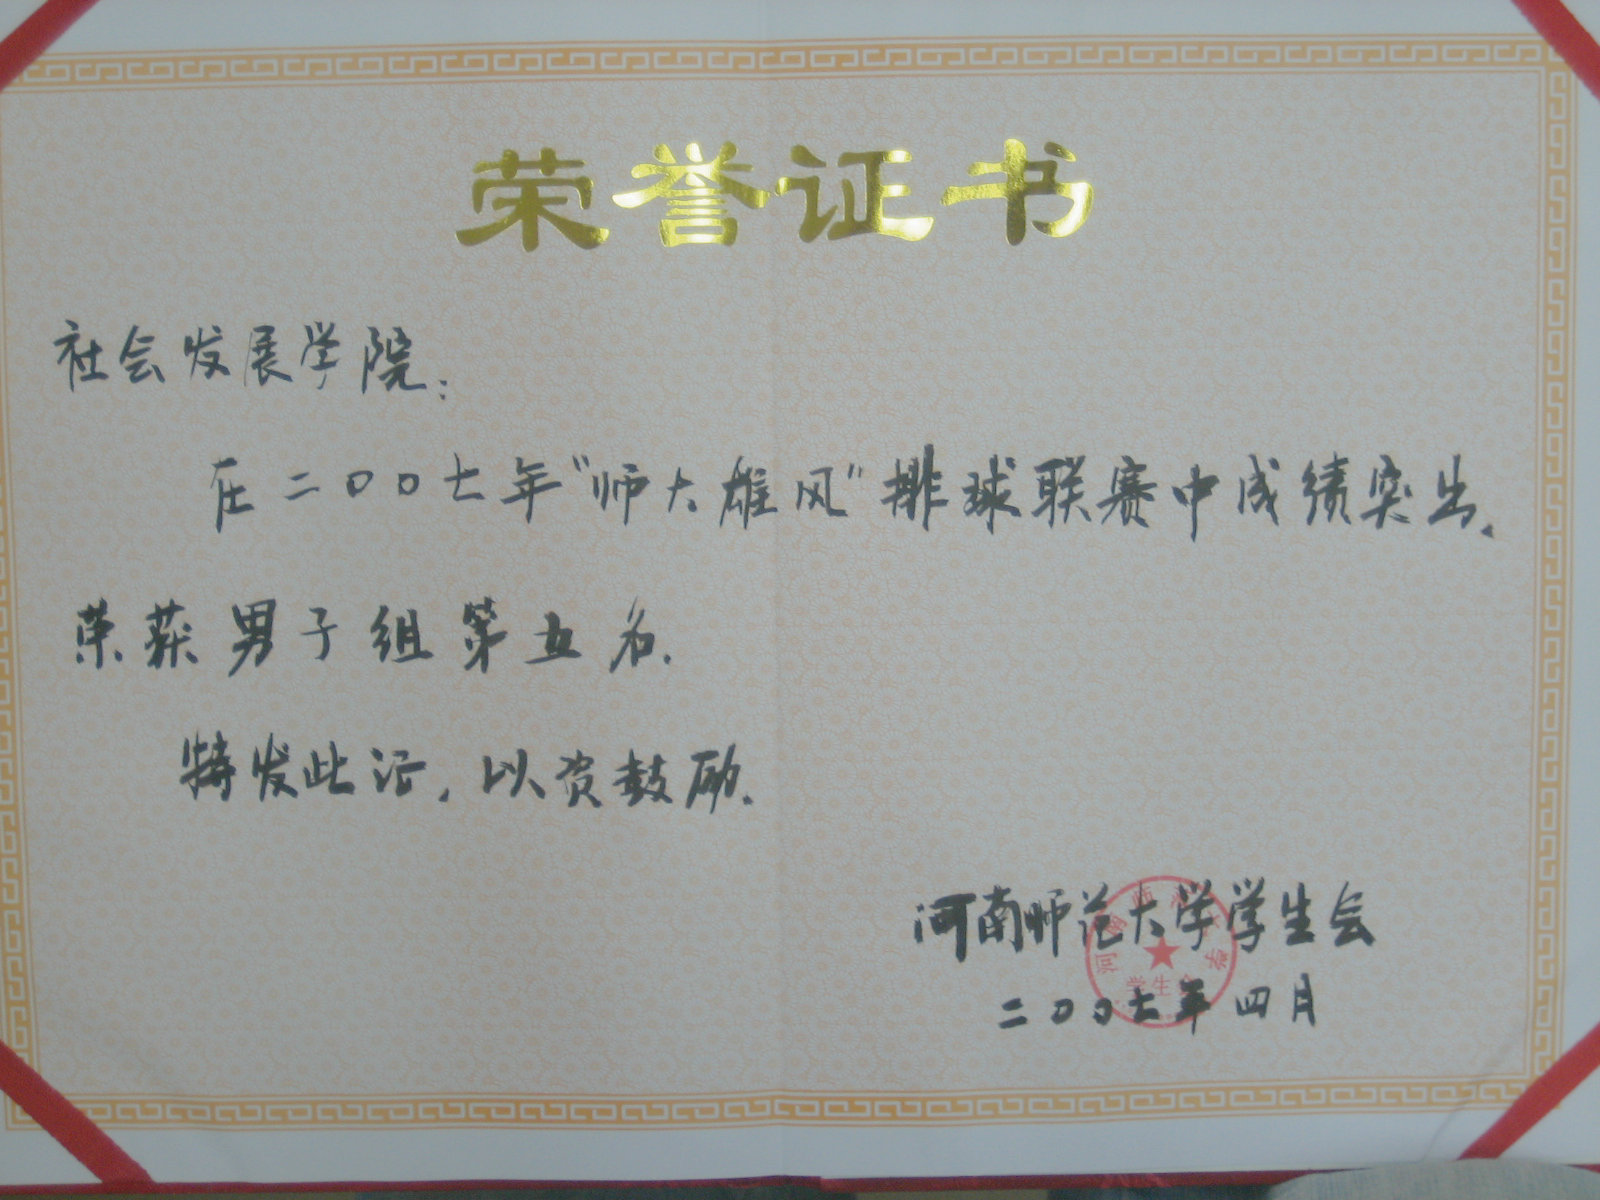 荣誉证书
社会发展学院:
在二〇〇七年“师大雄风”排球联赛中成绩突出.
荣获男子组第五名.
特发此证,以资鼓励.
河南师范大学学生会
二〇〇七年四月
河南师范大学
学生会